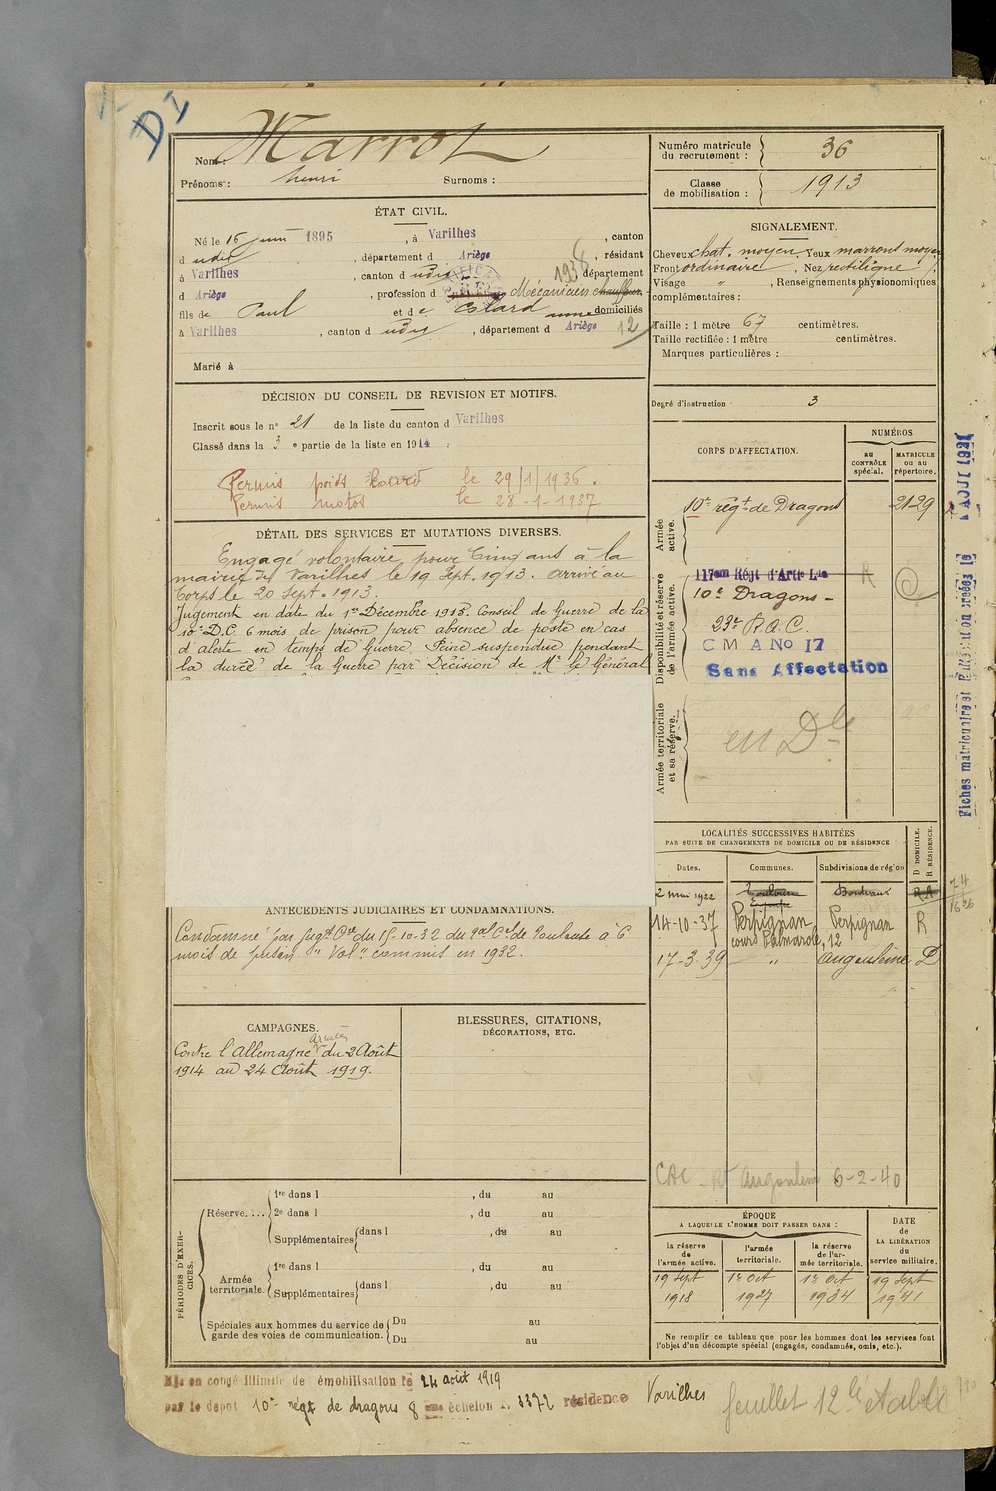 DI
Nom : Marrot
Prénoms : henri Surnoms :
ÉTAT CIVIL.
Né le 16 juin 1895, à Varilhes, canton
d udis, département d Ariège, résidant
à Varilhes, canton d udis 1938 département
d Ariège, profession d Mécanicien chauffeur
fils de Paul et de Eslard domiciliés
à Varilhes, canton d udis, département d Ariège 12
Marié à
DÉCISION DU CONSEIL DE REVISION ET MOTIFS.
Inscrit sous le n° 21 de la liste du canton d Varilhes
Classé dans la 3e partie de la liste en 1914 ;
Permis poids lourd le 29/1/1936.
Permis motos le 28-1-1937
DÉTAIL DES SERVICES ET MUTATIONS DIVERSES.
Engagé volontaire pour Cinq ans à la
mairie de Varilhes le 19 Sept. 1913. arrivé au
Corps le 20 Sept. 1913.
Jugement en date du 1er Décembre 1915. Conseil de Guerre de la
10e D.C. 6 mois de prison pour absence de poste en cas
d'alerte en temps de Guerre. Peine suspendue pendant
la durée de la Guerre par Décision de Mr le Général
ANTÉCÉDENTS JUDICIAIRES ET CONDAMNATIONS.
Condamné par Jugt du 15-10-32 du de Toulouse à 6
mois de prison "Vol" commis en 1932.
CAMPAGNES.
Contre l'Allemagne Armées du 2 Août
1914 au 24 Août 1919.
BLESSURES, CITATIONS,
DÉCORATIONS, ETC.
PÉRIODES D'EXERCICES.
Réserve. ...
1re dans l , du au
2e dans l , du au
Supplémentaires dans l , du au
Armée territoriale.
1re dans l , du au
Supplémentaires dans l , du au
Spéciales aux hommes du service de garde des voies de communication.
Du au
Du au
Numéro matricule du recrutement : 36
Classe de mobilisation : 1913
SIGNALEMENT.
Cheveux chat. moyen Yeux marrons moyen
Front ordinaire, Nez rectiligne
Visage " , Renseignements physionomiques
complémentaires :
Taille : 1 mètre 67 centimètres.
Taille rectifiée : 1 mètre centimètres.
Marques particulières :
Degré d'instruction 3
CORPS D'AFFECTATION.
NUMÉROS
AU CONTRÔLE spécial.
MATRICULE ou au répertoire.
Armée active.
10e régt de Dragons 2129
Disponibilité et réserve de l'armée active.
117em Régt d'Artie Lde
A
10e Dragons -
23e R.A.C.
C M A No 17
Sans Affectation
Armée territoriale et sa réserve.
en Dle
LOCALITÉS SUCCESSIVES HABITÉES
PAR SUITE DE CHANGEMENTS DE DOMICILE OU DE RÉSIDENCE
D DOMICILE.
R RÉSIDENCE.
Dates. Communes. Subdivisions de région
2 mai 1922 Toulouse Bordeaux
14-10-37 Perpignan Perpignan R
cours Palmarole, 12
17-3-39 " Angoulême D
CAC Angoulem 6-2-40
ÉPOQUE
A LAQUELLE L'HOMME DOIT PASSER DANS :
DATE DE LA LIBÉRATION du service militaire.
la réserve de l'armée active.
l'armée territoriale.
la réserve de l'armée territoriale.
19 Sept 1918
1er Oct 1927
1er Oct 1934
19 Sept 1941
Ne remplir ce tableau que pour les hommes dont les services font
l'objet d'un décompte spécial (engagés, condamnés, omis, etc.).
Mis en congé illimité de démobilisation le 24 août 1919
par le dépôt 10e régt de dragons 8eme échelon n. 3372 résidence Varilhes
feuillet 12 lé établi